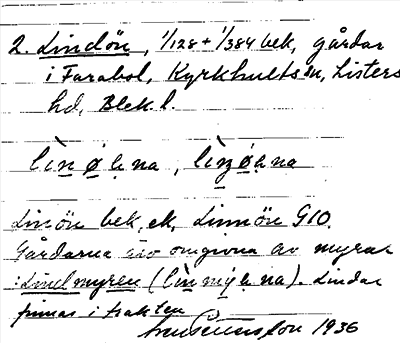 2. Lindön, 1/128 + 1/384 bek, gårdar
i Farabol, Kyrkhults sn, Listers
hd, Blek l.
lìnø̀ḥna, lìnǿḥna
Linön bek, ek, Linnön G10.
Gårdarna äro omgivna av myrar
: Lindmyren (lìnmýḥna). Lindar
finnas i trakten
1936